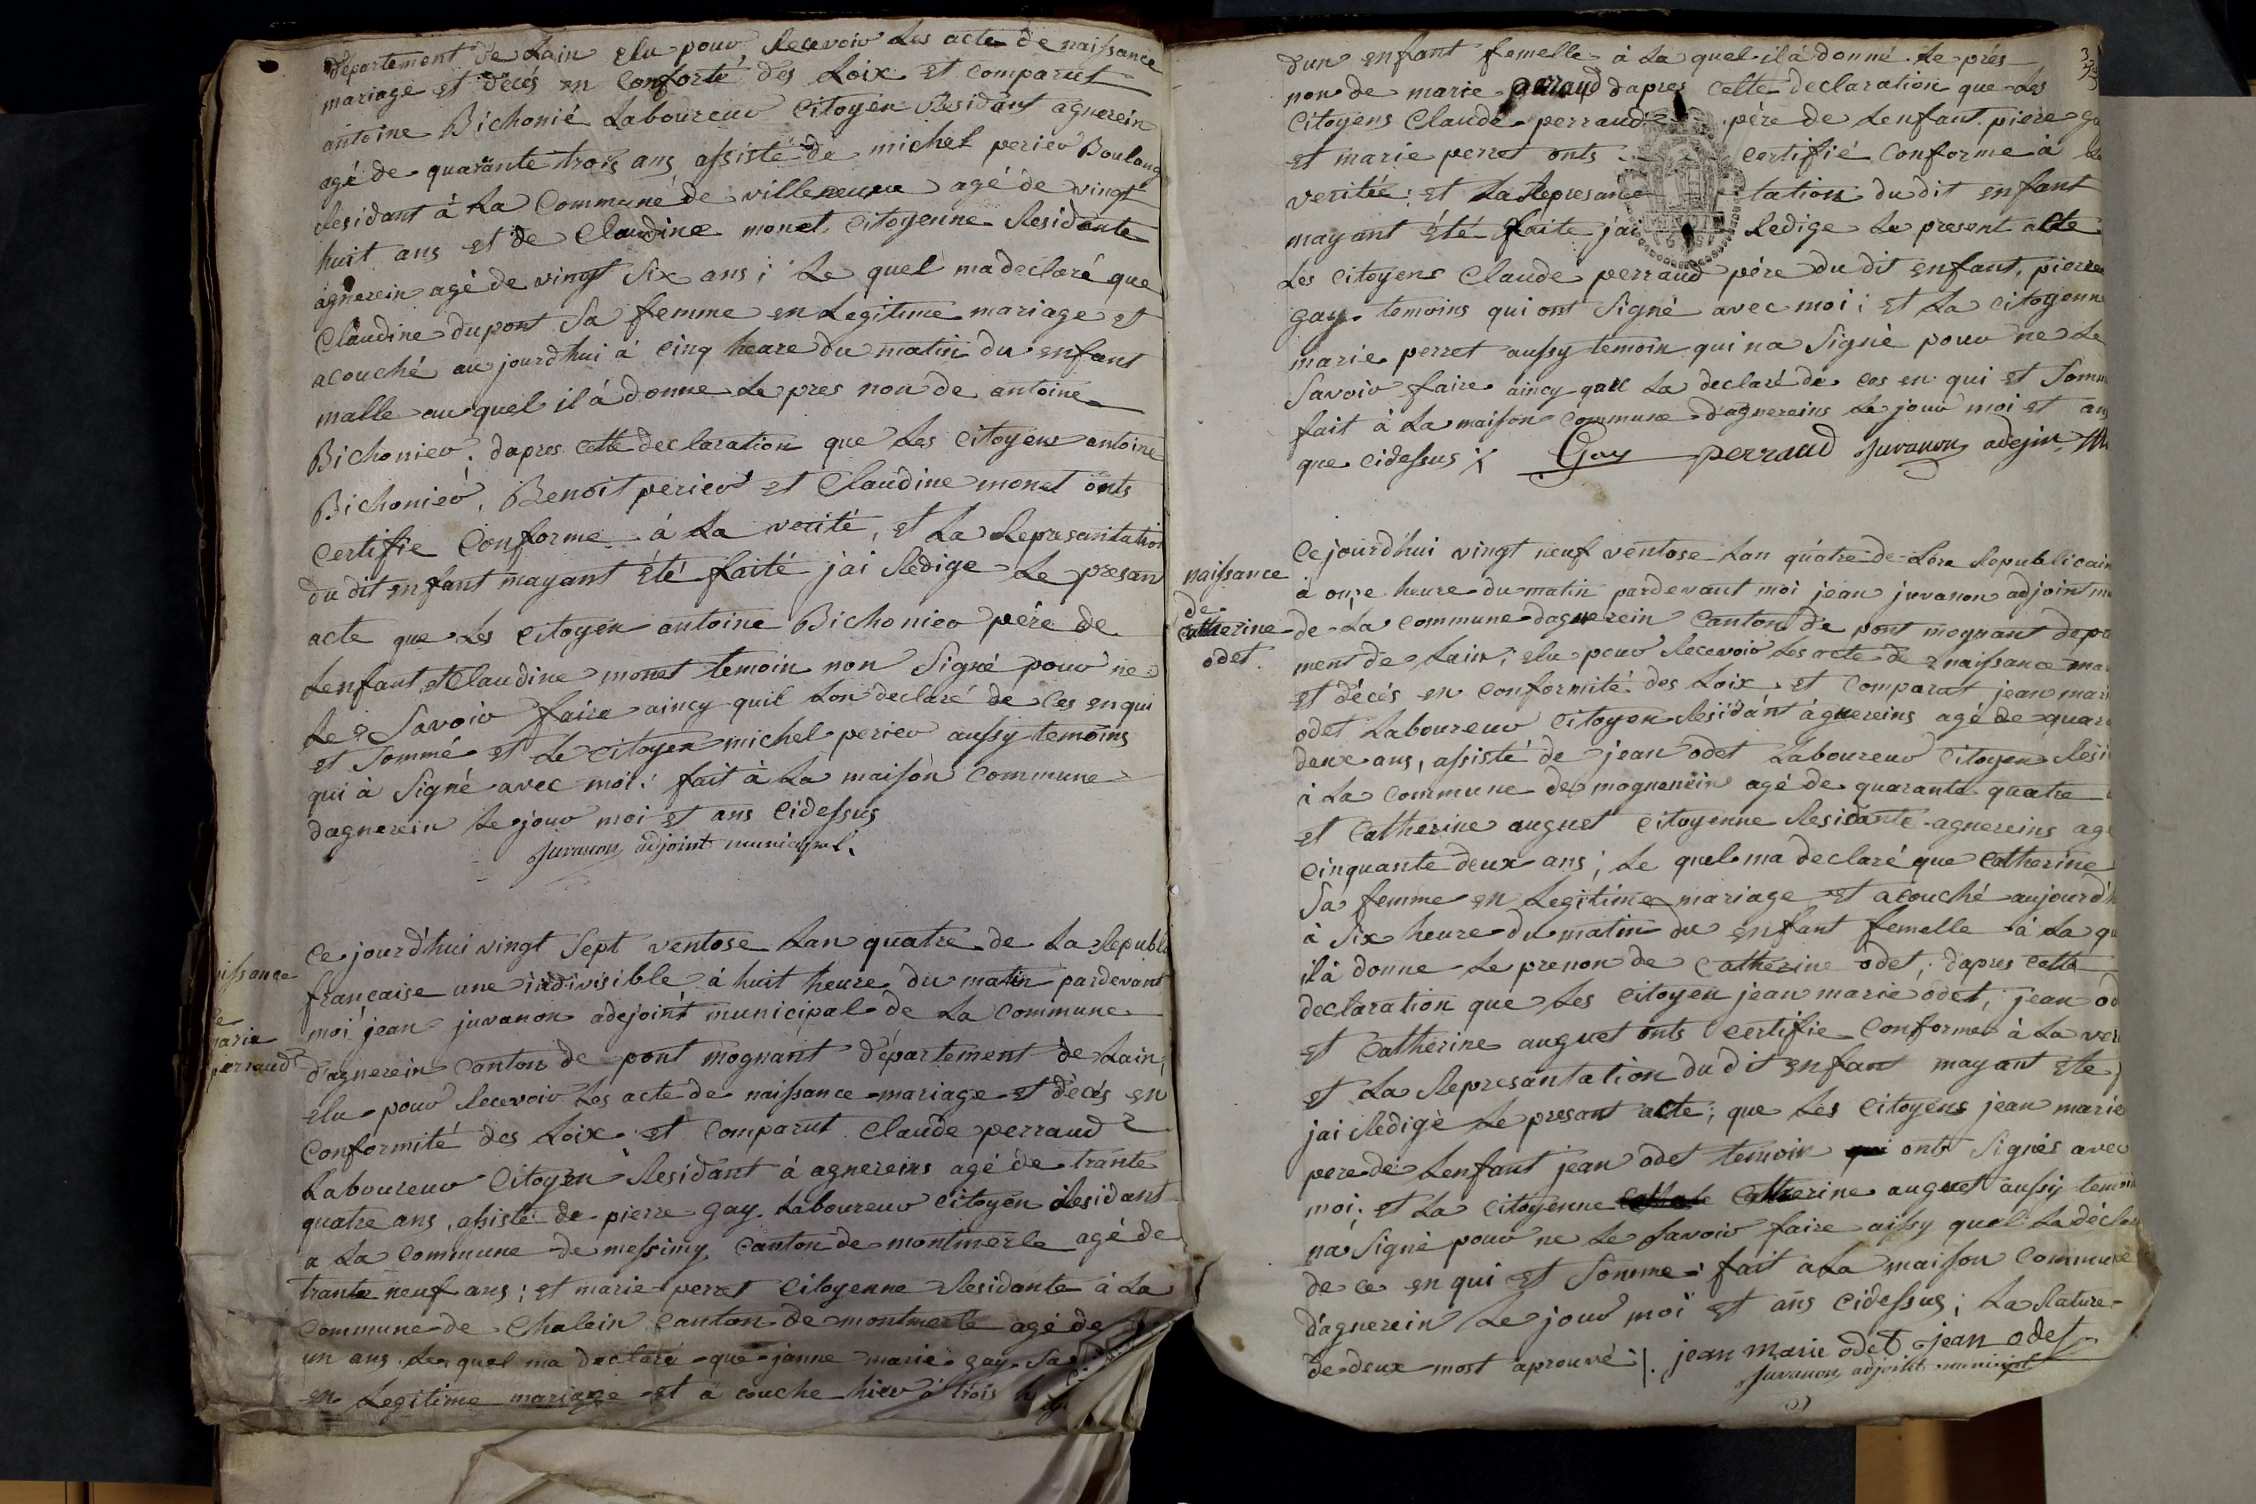 département de Lain elu pour Recevoir Les acte de naissance
mariage et décés en Conforté des Loix et Comparut
antoine Bichonié Laboureur Citoyen Residant agnerein
agé de quarante trois ans assisté de michel perier Boulang
Residant à La Commune de villeneuve agé de vingt
huit ans et de Claudine monet Citoyenne Residante
agnerein agé de vingt Six ans ; Le quel ma declaré que
Claudine dupont Sa femme en Legitime mariage et
acouché au jourdhui à Cinq heure du matin du enfant
malle au quel il à donne Le pres non de antoine
Bichonier ; dapres cette declaration que Les Citoyens antoine
Bichonier, Benoit perier et Claudine monet onts
Certifie Conforme à La verité, et La Represantation
du dit enfant mayant été faité jai Redige Le presan
acte que Les Citoyen antoine Bichonier pére de
Lenfant et Claudine monet temoin non Signé pour ne
Le Savoir faire aincy quil Lon declaré de Ces enqui
et Sommé et Le Citoyen michel perier aussy temoins
qui à Signé avec moi : fait à La maison Commune
dagnerein Le jour moi et ans Cidessus
Juvanon adjoint municipal.
issance
de
marie
perraud
Ce jourd'hui vingt Sept ventose Lan quatre de La Republi
francaise une indivisible à huit heure du matin pardevant
moi jean juvanon adejoint municipal de La Commune
d'agnerein Canton de pont mognant département de Lain,
elu pour Recevoir Les acte de naissance mariage et décés en
Conformité des Loix et Comparut Claude perraud
Laboureur Citoyen Residant à agnereins agé de trante
quatre ans, assisté de pierre gay Laboureur Citoyen Residant
a La Commune de messimy Canton de montmerle agé de
trante neuf ans ; et marie perret Citoyenne Residante à La
Commune de Chalein Canton de montmerle agé de
un ans Le quel ma declaré que janne marie gay Sa
en Legitime mariage et à couche hier à trois h
3
dun enfant femelle à La quel il à donné Le prés
non de marie perraud dapres Cette declaration que Les
Citoyens Claude perraud pére de Lenfant pierre ga
et marie perret onts Certifié Conforme à La
veritée ; et La Represance tation du dit enfant
mayant été faite jai Redige Le present acte
Les Citoyens Claude perraud pére du dit enfant, pierre
gay temoins qui ont Signé avec moi ; et La Citoyenn
marie perret aussy temoin qui na Signé pour ne Le
Savoir faire aincy quel La declaré de Ces en qui et Somm
fait à La maison Commune dagnereins Le jour moi et an
que Cidessus Gay perraud Juvanon adejin
naissance
de
Catherine
odet.
Ce jourd'hui vingt neuf ventose Lan quatre de Lere Republicain
à onze heure du matin pardevant moi jean juvanon adjoint mu
de La Commune dagnerein Canton de pont mognant depa
ment de Lain ; elu pour Recevoir Les acte de naissance ma
et décés en Conformité des Loix et Comparat jean mari
odet Laboureur Citoyen Residant àgnereins agé de quara
deux ans, assisté de jean odet Laboureur Citoyen Resi
à La Commune de mogneneins agé de quarante quatre
et Catherine auguet Citoyenne Residante agnereins agé
Cinquante deux ans ; Le quel ma declaré que Catherine
Sa femme en Legitime mariage et acouché aujourd'h
à Six heure du matin du enfant femelle à La qu
il à donne Le prenon de Catherine odet ; dapres Cette
declaration que Les Citoyen jean marie odet, jean od
et Catherine auguet onts Certifie Conforme à La ver
et La Represantation du dit enfant mayant ete
jai Redigé Le presant acte ; que Les Citoyens jean marie
pere de Lenfant jean odet temoin qui onts Signés avec
moi ; et La Citoyenne Catherine auguet aussy temoin
na Signé pour ne Le Savoir faire aissy quel La déclar
de ce en qui et Somme ; fait à La maison Commune
d'agnerein Le jour moi et ans Cidessus ; La Rature
de deux most aprouvé jean marie odet jean odet
Juvanon adjoint municipal